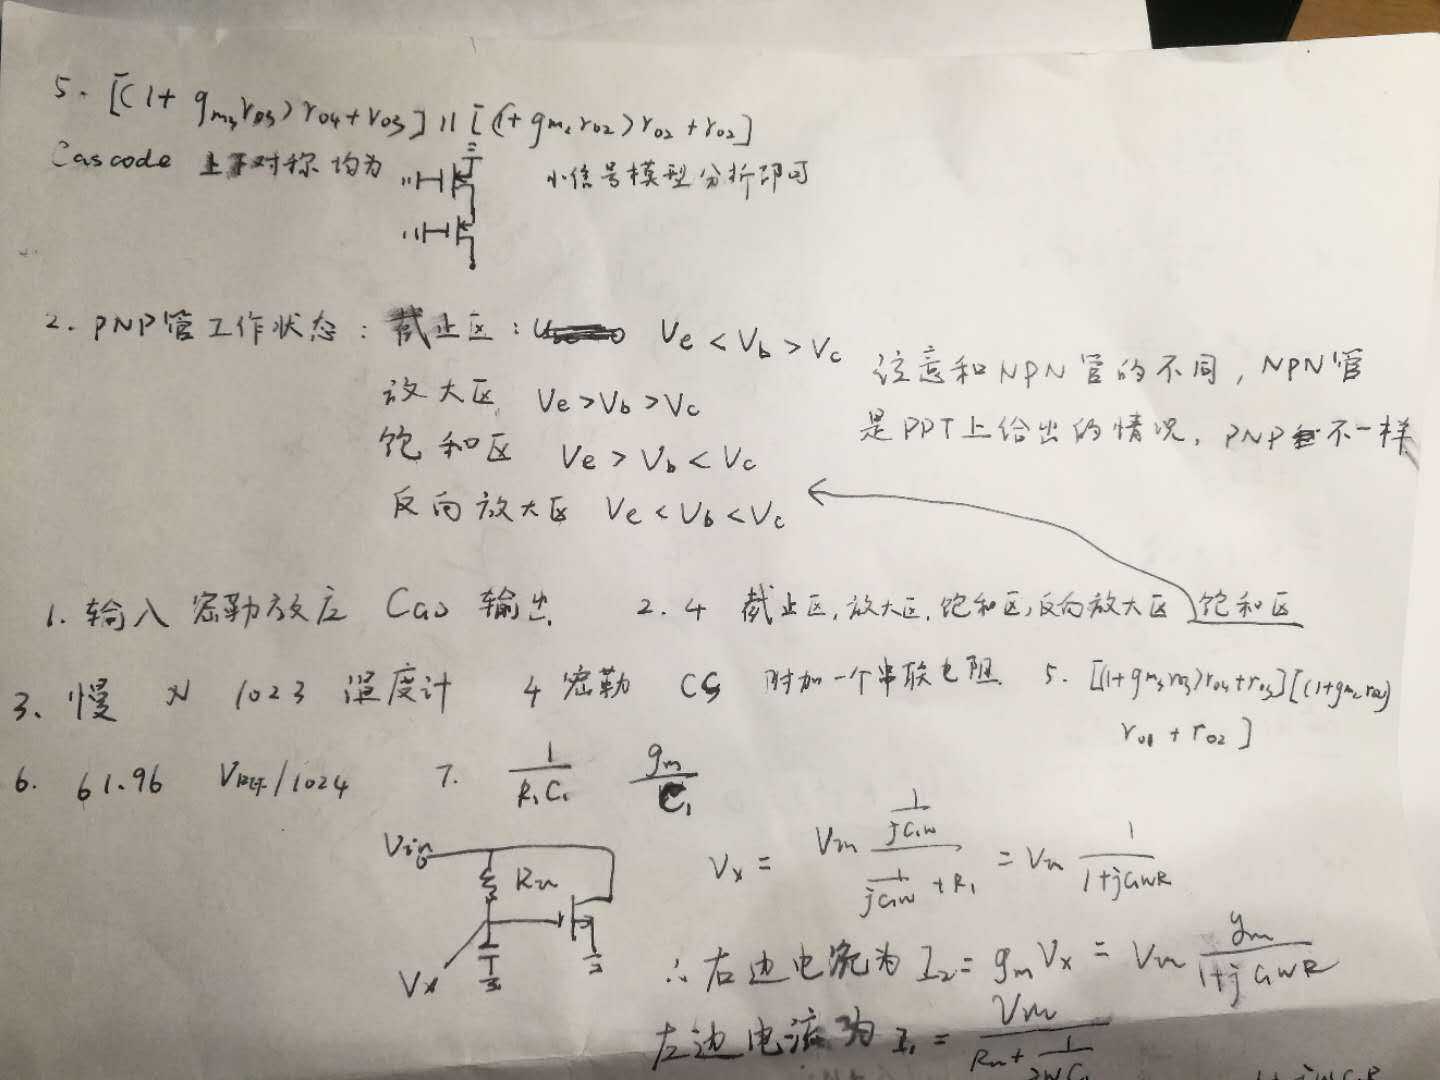 5. [(1+gm₃r₀₃)r₀₄+r₀₃] || [(1+gm₂r₀₂)r₀₂+r₀₂]
Cascode 上下对称 均为 小信号模型分析即可
2. PNP管工作状态: 截止区: Ve<Vb>Vc
放大区 Ve>Vb>Vc
饱和区 Ve>Vb<Vc
反向放大区 Ve<Vb<Vc
注意和NPN管的不同, NPN管
是PPT上给出的情况, PNP不一样
1. 输入 密勒效应 输出
2. 4 截止区, 放大区, 饱和区, 反向放大区 饱和区
3. 慢 N 1023 温度计
4 密勒 CG 附加一个串联电阻
5. [(1+gm₃r₀₃)r₀₄+r₀₃][(1+gm₂r₀₂)
r₀₁+r₀₂]
6. 61.96 VREF/1024
7. 1/R₁C₁ gm/C₁
Vin
Vx
Vx = Vin (1/jC₁w)/(1/jC₁w+R₁) = Vin 1/(1+jC₁wR)
∴右边电流为 I₂=gmVx=Vin gm/(1+jC₁wR)
左边电流为 I₁=